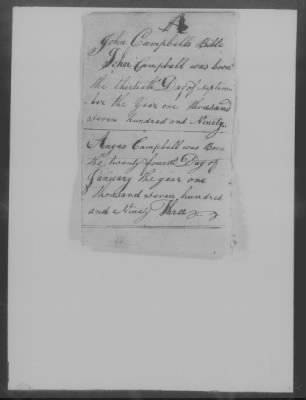 A
John Campbells Bible
John Campbell was born
the thirtieth Day of septem
ber the Year one thousand
seven hundred and Ninety
Anges Campbell was Born
the twenty fourth Day of
January the year one
thousand seven hundred
and Ninety Three